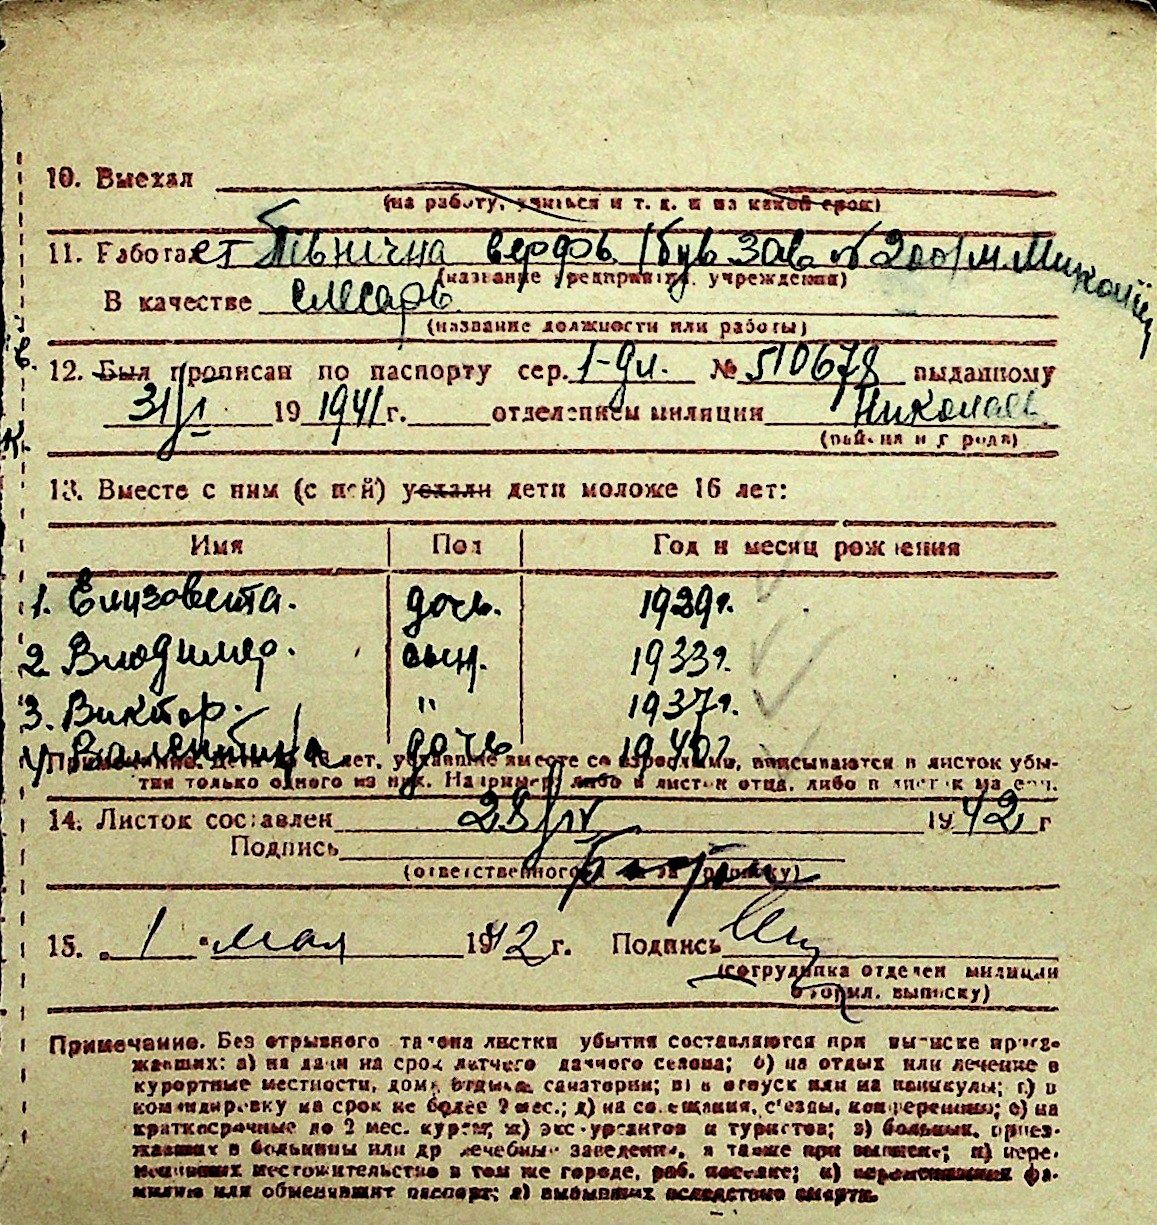 10. Выехал
(на работу, учиться и т. д. и на какой срок)
11. Работает Північна верфь /був Зав об 200/ м. Миколаїв
(название предприятия, учреждения)
В качестве слесарь
(название должности или работы)
12. Был прописан по паспорту сер. 1-ди. № 510678 выданному
31/I 19 1941 г. отделением милиции Николаев
13. Вместе с ним (с ней) уехали дети моложе 16 лет:
Имя Пол Год и месяц рождения
1. Елизавета. дочь. 1929г.
2 Владимир. сын. 1933г.
3. Виктор. " 1937г.
4 Валентина дочь 1940г.
Примечание. Дети до 16 лет, уехавшие вместе со взрослыми, вписываются в листок убы-
тия только одного из них. Например, либо в листок отца, либо в листок матери.
14. Листок составлен 28/IV 1942 г
Подпись
(ответственного за прописку)
15. " 1 " мая 1942 г. Подпись
(сотрудника отделен милиции
оформл. выписку)
Примечание. Без отрывного талона листки убытия составляются при выписке приез-
жавших: а) на дачи на срок летнего дачного сезона; б) на отдых или лечение в
курортные местности, дома отдыха, санатории; в) в отпуск или на каникулы; г) в
командировку на срок не более 2 мес.; д) на совещания, съезды, конференции; е) на
краткосрочные до 2 мес. курсы; ж) экскурсантов и туристов; з) больных, приез-
жавших в больницы или др лечебные заведения, а также при выписке; и) пере-
менивших местожительство в том же городе, раб. поселке; к) переменивших фа-
милию или обменявших паспорт; л) выбывших вследствие смерти.